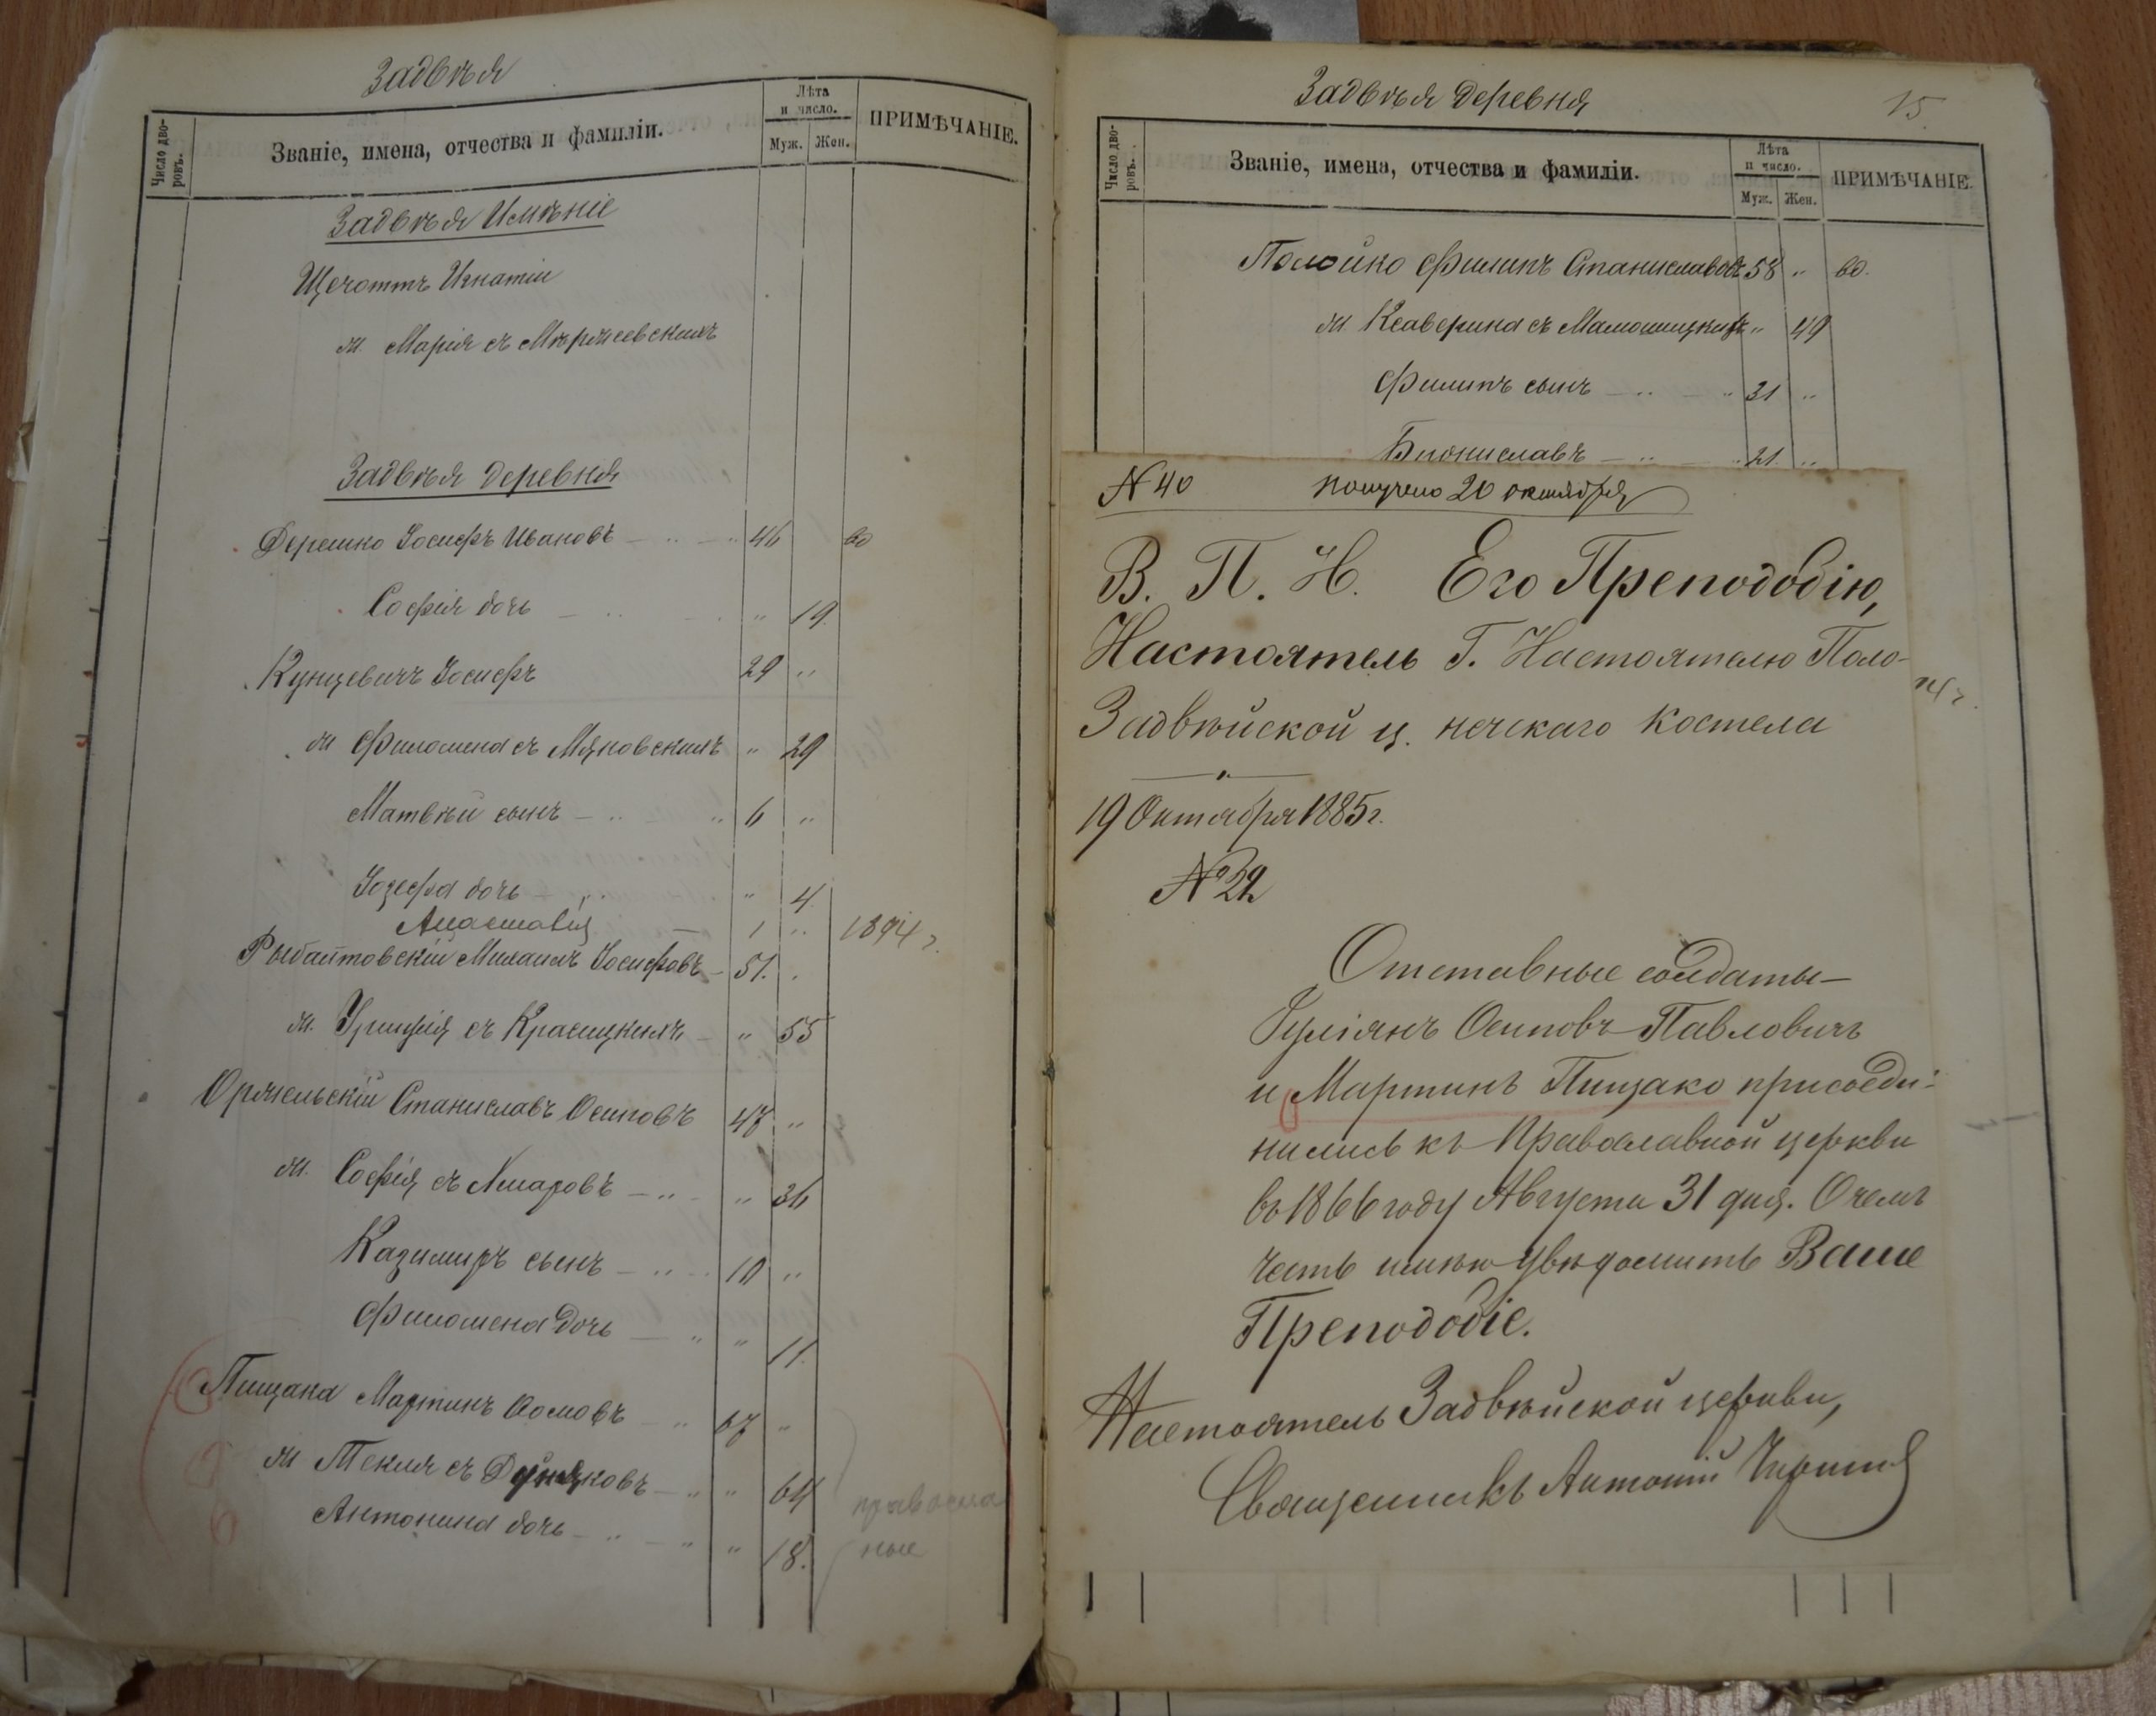 Задвѣя
Число дво-
ровъ.
Званіе, имена, отчества и фамиліи.
Лѣта
и число.
Муж. Жен.
ПРИМѢЧАНІЕ.
Задвѣя Имѣніе
Щечоттъ Игнатій
ж. Марія съ Мѣржеевскихъ
Задвѣя деревня
Дерешко Іосифъ Ивановъ 46 60
Софія дочь " 19.
Кунцевичъ Іосифъ 29 "
ж Филомена съ Мяновскихъ " 29
Матвѣй сынъ " 6 "
Іозефа дочь " 4.
1 " 1894 г.
Михаилъ Іосифовъ 51.
ж. съ Красицкихъ " 55
Оржельскій Станиславъ Осиповъ 47 "
ж. Софія съ " 36
Казимиръ сынъ 10 "
Филомена Дочь " 11.
Пищака Мартинъ Ѳомовъ 67 "
ж Текля съ " 64
Антонина дочь " 18.
православ
ные
Задвѣя деревня
15
Число дво-
ровъ.
Званіе, имена, отчества и фамиліи.
Лѣта
и число.
Муж. Жен.
ПРИМѢЧАНІЕ.
Полойко Филипъ Станиславовъ 58 " 60.
ж. Ксаверина съ " 49
Филипъ сынъ " 31 "
Брониславъ " 21. "
N 40 получено 20 октября
В. П. И. Его Преподобію,
Настоятель Г. Настоятелю Поло-
Задвѣйской ц. нечскаго Костела
19 Октября 1885 г.
№ 22
Отставные солдаты—
Іуліянъ Осиповъ Павловичъ
и Мартинъ Пищако присоеди-
нились къ Православной церкви
въ 1866 году Августа 31 дня. О чемъ
честь имѣю увѣдомить Ваше
Преподобіе.
Настоятель Задвѣйской церкви,
Священникъ Антоній